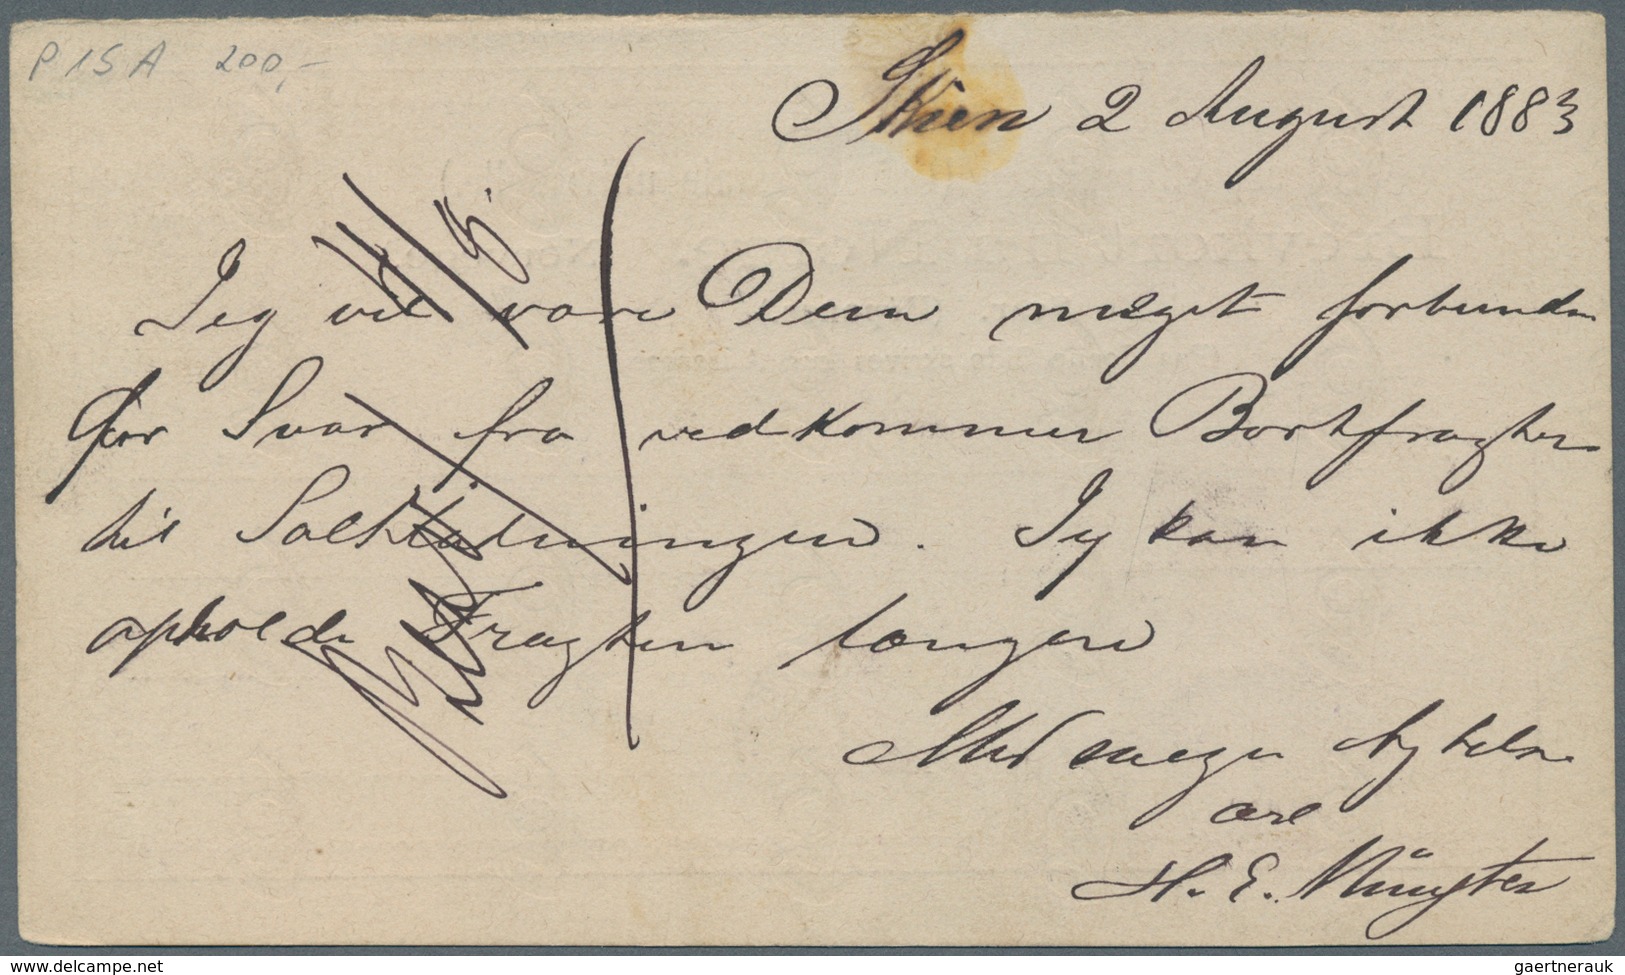 P 15 A 200,-
Skien 2 August 1883
11/8.
Jeg vil være Dem meget forbunden
for Svar fra vedkommer Bortfragter
til Saltladningen. Jeg kan ikke
opholde Fragten længere
Med megen Agtelse
H. E. Münster
www.delcampe.net
gaertnerauk